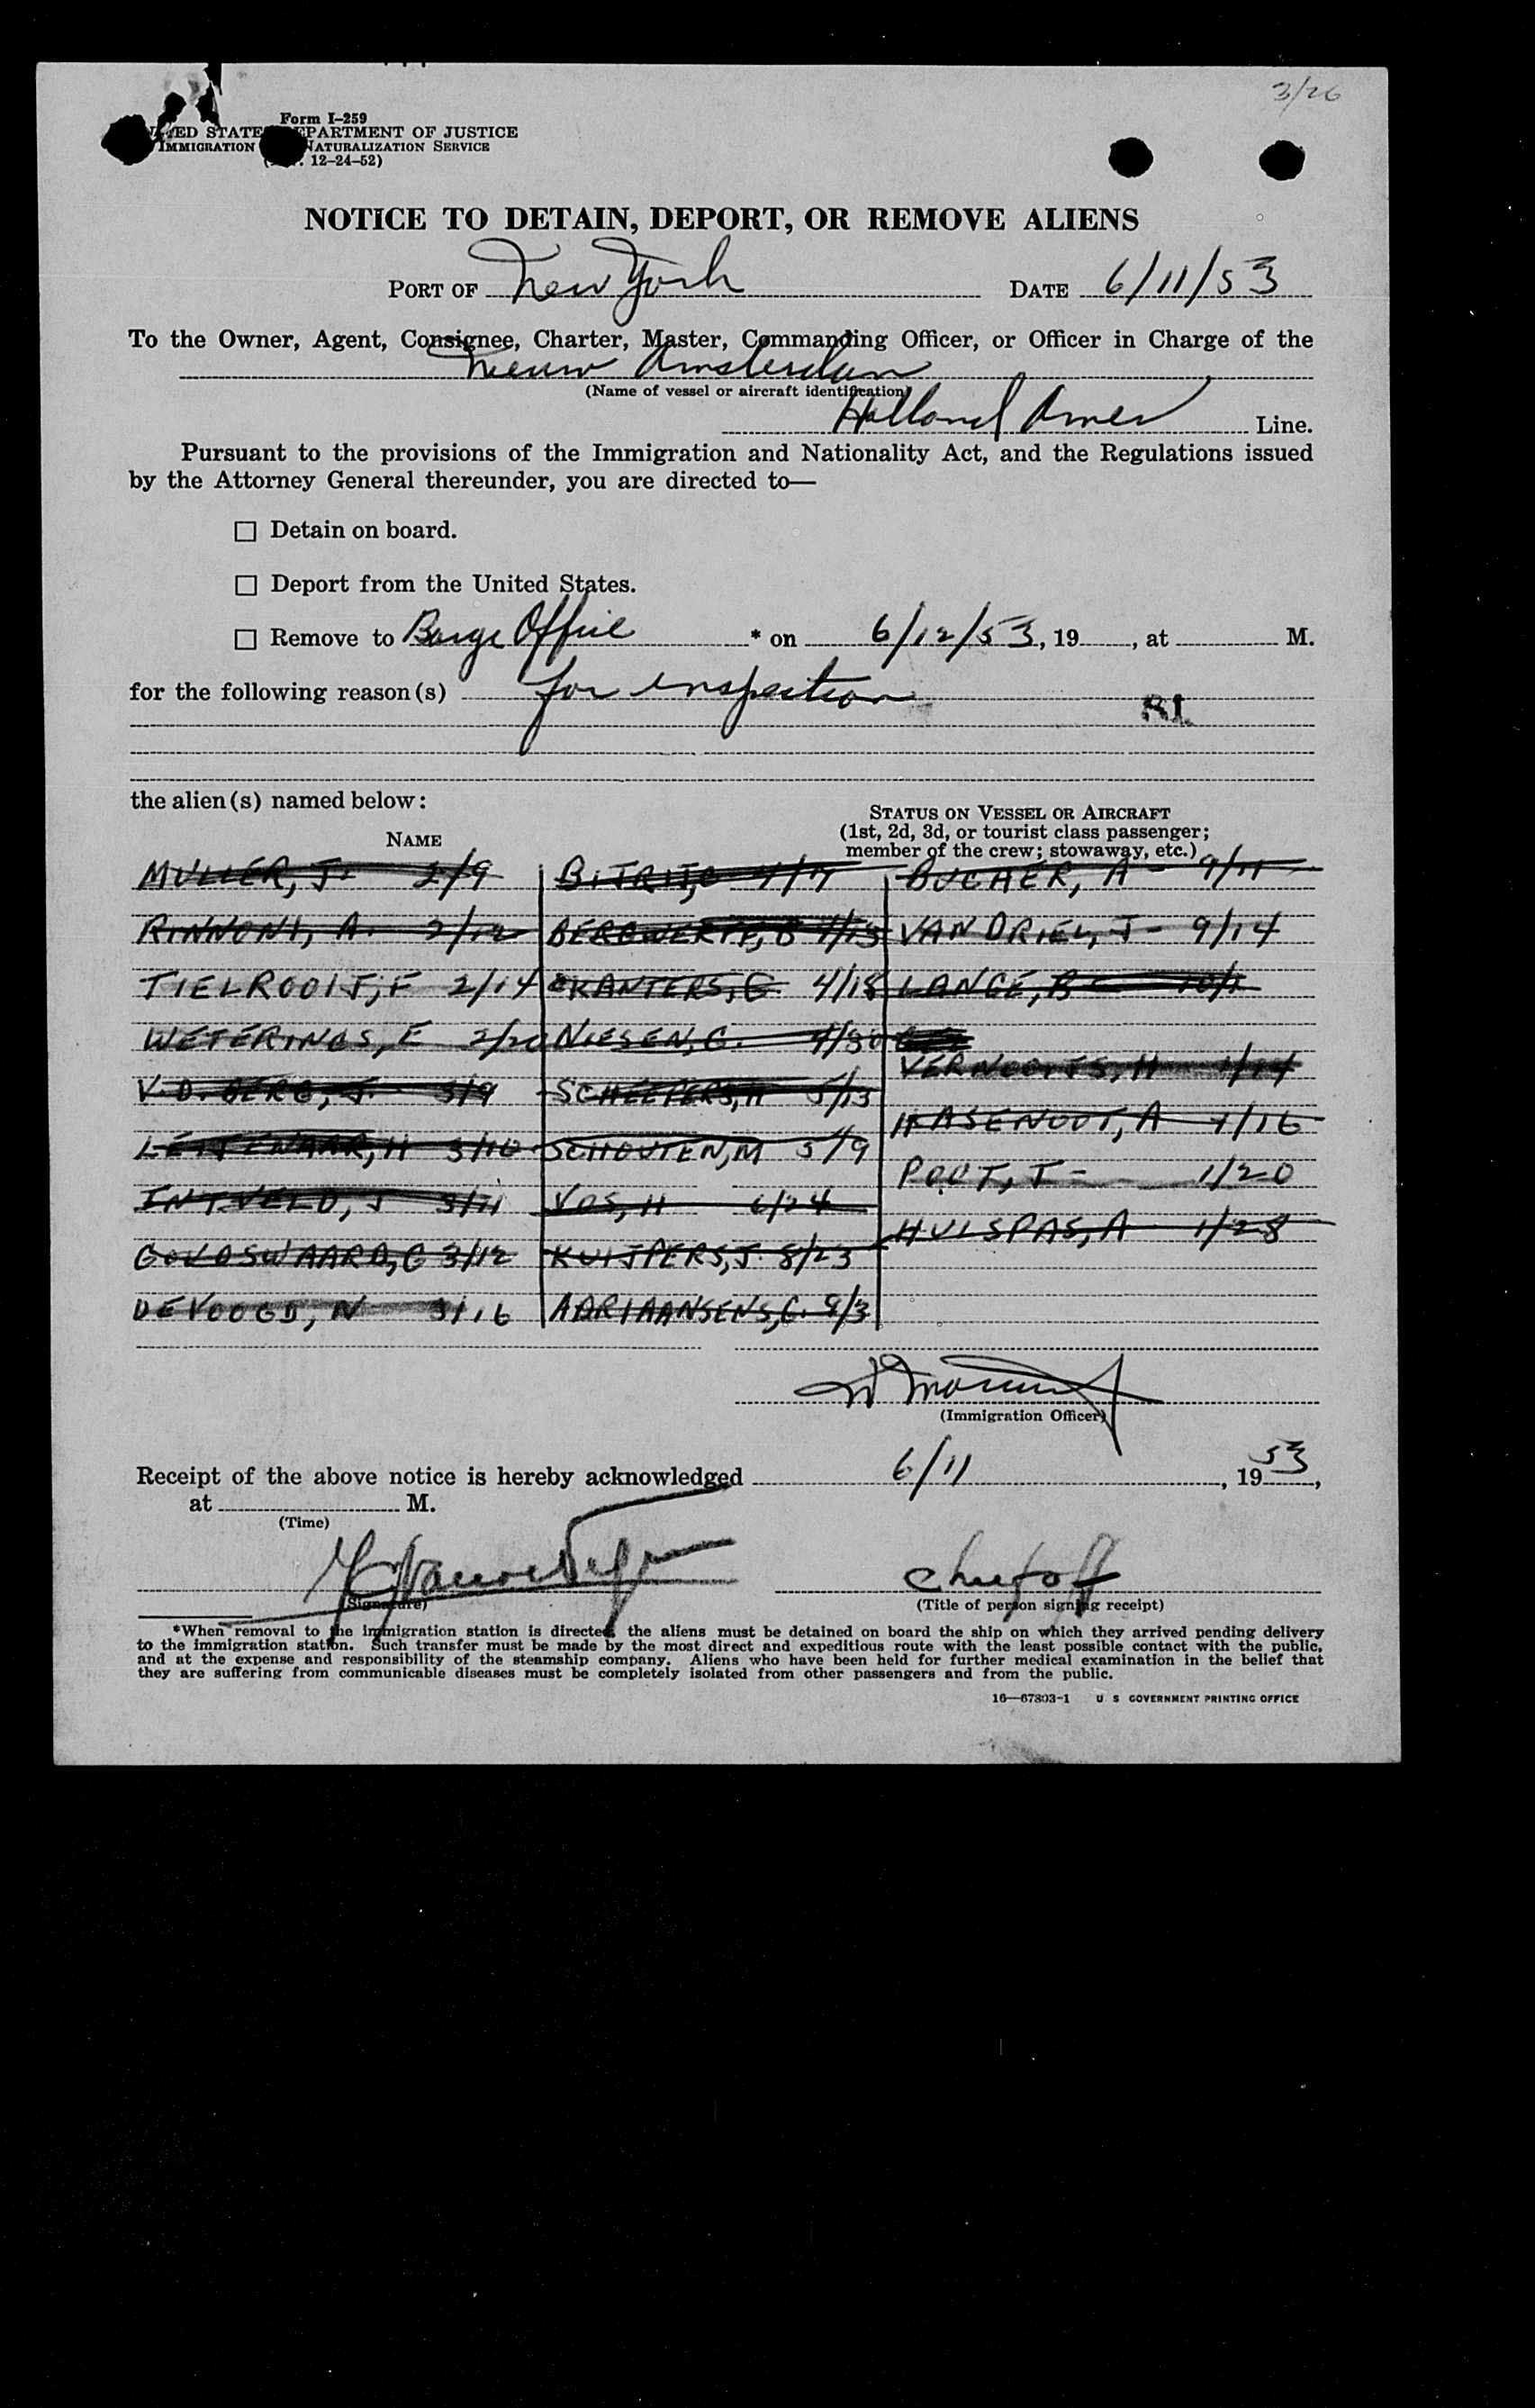 3/26
Form I-259
UNITED STATES DEPARTMENT OF JUSTICE
IMMIGRATION NATURALIZATION SERVICE
12-24-52)
NOTICE TO DETAIN, DEPORT, OR REMOVE ALIENS
PORT OF New York DATE 6/11/53
To the Owner, Agent, Consignee, Charter, Master, Commanding Officer, or Officer in Charge of the
Nieuw Amsterdam
(Name of vessel or aircraft identification)
Holland Amer Line.
Pursuant to the provisions of the Immigration and Nationality Act, and the Regulations issued
by the Attorney General thereunder, you are directed to—
☐ Detain on board.
☐ Deport from the United States.
☐ Remove to Barge Office * on 6/12/53, 19, at M.
for the following reason(s) for inspection
the alien(s) named below:
NAME
STATUS ON VESSEL OR AIRCRAFT
(1st, 2d, 3d, or tourist class passenger;
member of the crew; stowaway, etc.)
MULLER, J. 2/9
RINNONI, A. 2/12
TIELROOIJ, F 2/14
WETERINGS, E 2/20
V.D. BERG, J. 3/9
3/10
INTVELD, J 3/11
GOUDSWAARD, C 3/12
DEVOOGD, N 3/16
4/7
4/15
KANTERS, G. 4/18
NIESEN, G. 4/30
SCHEEPERS, H 5/13
SCHOUTEN, M 5/9
VOS, H 6/24
KUIJPERS, J. 8/23
ADRIAANSENS, C. 9/3
BUCHER, A 9/11
VAN DRIEL, J - 9/14
LANGE, B 10/1
VERNOOIJS, H 1/14
HASENOOT, A 1/16
POOT, T - 1/20
HULSPAS, A 1/28
(Immigration Officer)
Receipt of the above notice is hereby acknowledged 6/11, 1953,
at M.
(Time)
chief off
(Signature)
(Title of person signing receipt)
*When removal to the immigration station is directed, the aliens must be detained on board the ship on which they arrived pending delivery
to the immigration station. Such transfer must be made by the most direct and expeditious route with the least possible contact with the public,
and at the expense and responsibility of the steamship company. Aliens who have been held for further medical examination in the belief that
they are suffering from communicable diseases must be completely isolated from other passengers and from the public.
16—67803-1 U S GOVERNMENT PRINTING OFFICE